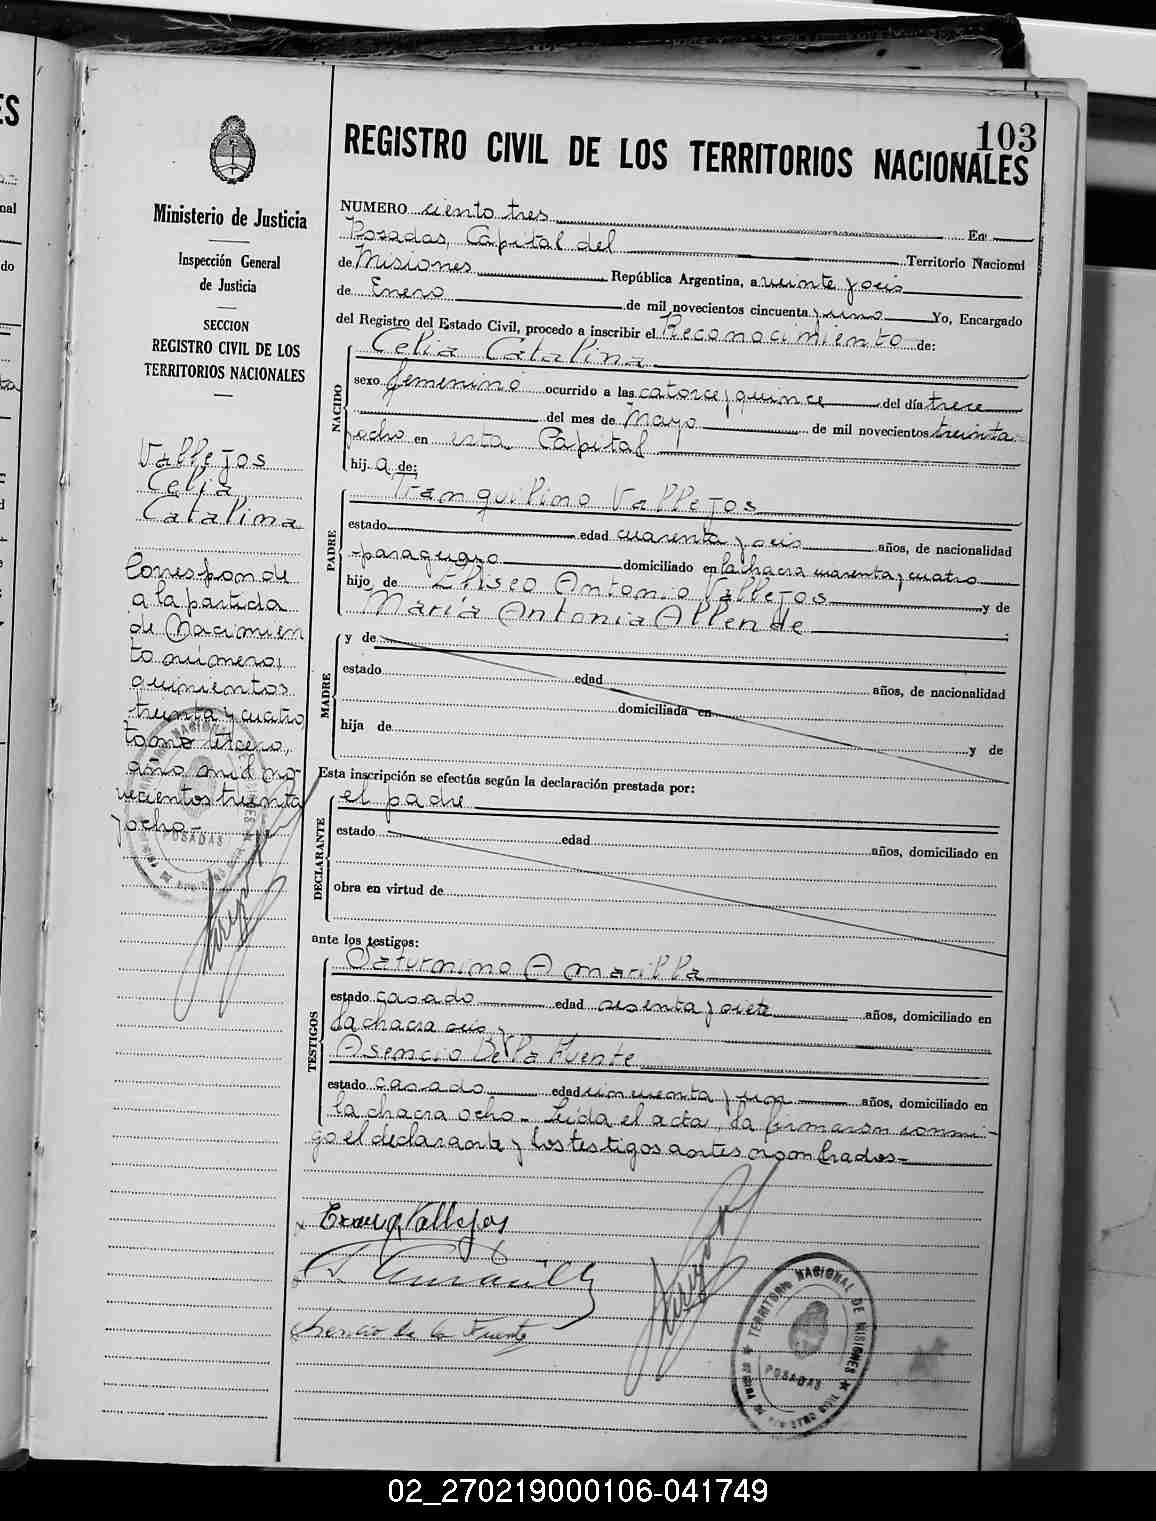 103
REGISTRO CIVIL DE LOS TERRITORIOS NACIONALES
Ministerio de Justicia
Inspección General
de Justicia
SECCION
REGISTRO CIVIL DE LOS
TERRITORIOS NACIONALES
Vallejos
Celia
Catalina
Corresponde
a la partida
de Nacimien
to número:
quinientos
treinta y cuatro,
tomo tercero,
año mil no-
vecientos treinta
y ocho.-
NUMERO ciento tres En
Posadas, Capital del Territorio Nacional
de Misiones República Argentina, a veinte y seis
de Enero de mil novecientos cincuenta y uno Yo, Encargado
del Registro del Estado Civil, procedo a inscribir el Reconocimiento de:
NACIDO
Celia Catalina
sexo femenino ocurrido a las catorce y quince del día trece
del mes de Mayo de mil novecientos treinta
y ocho en esta Capital
hij a de:
PADRE
Tranquilino Vallejos
estado edad cuarenta y seis años, de nacionalidad
paraguayo domiciliado en la chacra cuarenta y cuatro
hijo de Eliseo Antonio Vallejos y de
María Antonia Allende
MADRE
y de
estado edad años, de nacionalidad
domiciliada en
hija de y de
Esta inscripción se efectúa según la declaración prestada por:
DECLARANTE
el padre
estado edad años, domiciliado en
obra en virtud de
ante los testigos:
TESTIGOS
Saturnino Amarilla
estado casado edad sesenta y siete años, domiciliado en
la chacra seis y
Asencio De la Fuente
estado casado edad cincuenta y un años, domiciliado en
la chacra ocho.- Leída el acta, la firmaron conmi-
go el declarante y los testigos antes nombrados.-
Vallejos
S Amarilla
Asencio de la Fuente
TERRITORIO NACIONAL DE MISIONES
POSADAS
REGISTRO CIVIL
02_270219000106-041749